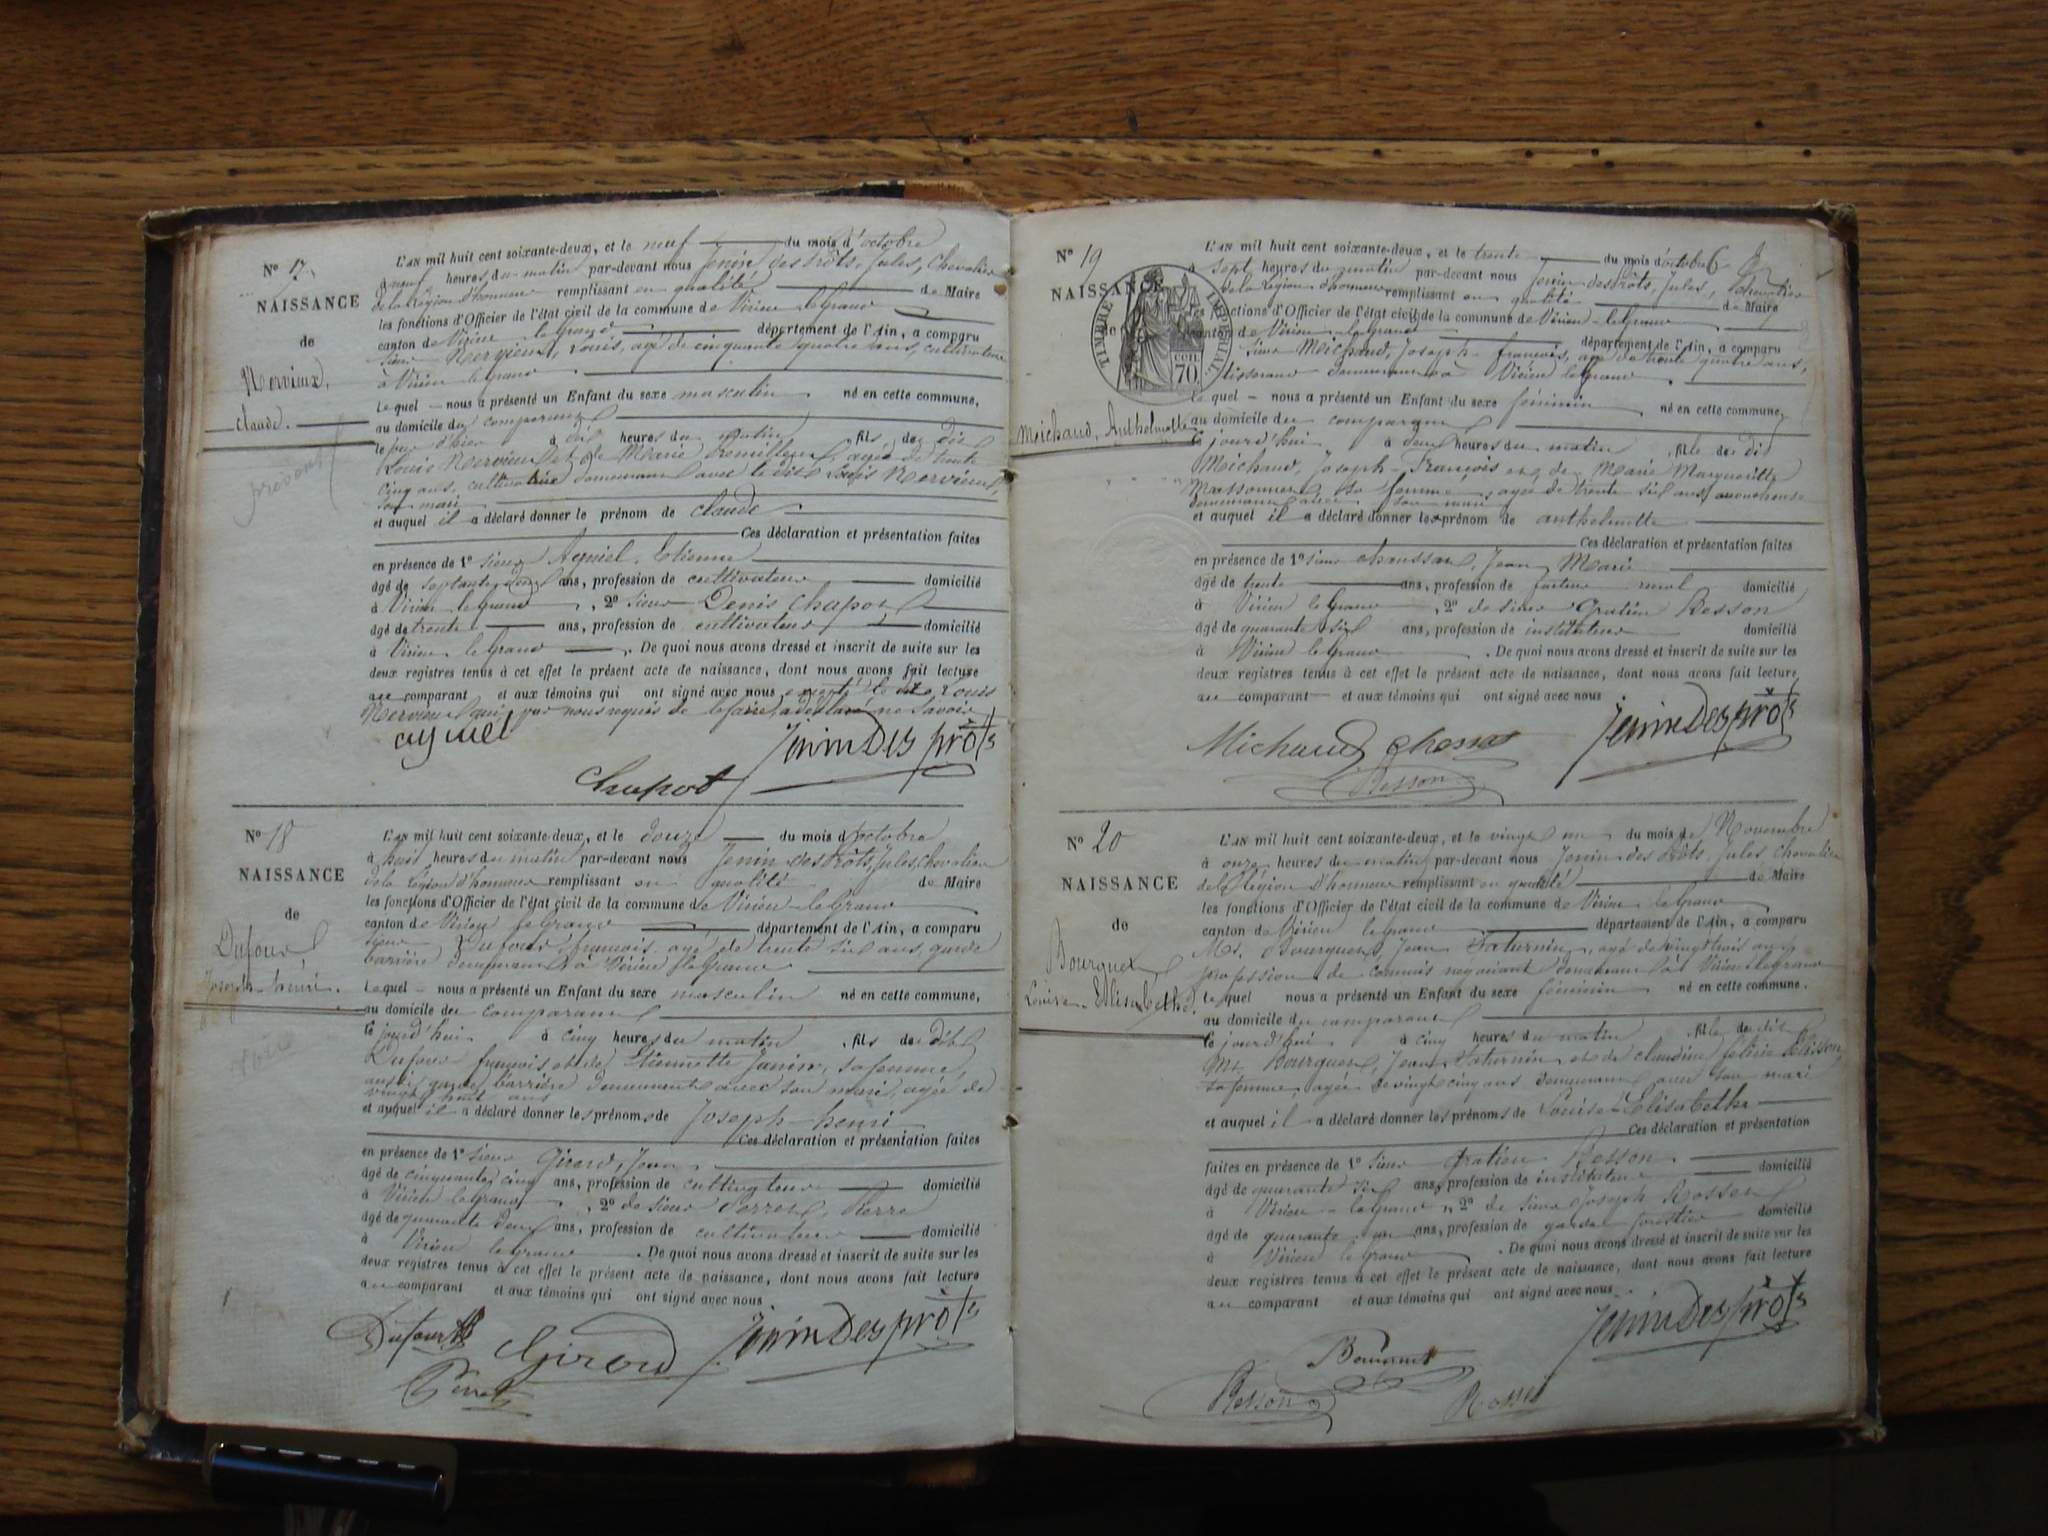 N° 17.
NAISSANCE
de
Nervieux,
claude.
L'AN mil huit cent soixante-deux, et le neuf du mois d'octobre
à neuf heures du matin par-devant nous Jenin des Prôts, Jules, Chevalier
de la Légion d'honneur remplissant en qualité de Maire
les fonctions d'Officier de l'état civil de la commune de Virieu le Grand
canton de Virieu le Grand département de l'Ain, a comparu
sieur Nervieux, Louis, agé de cinquante quatre ans, cultivateur
à Virieu le Grand
lequel nous a présenté un Enfant du sexe masculin né en cette commune,
au domicile du comparant
le jour d'hier à dix heures du matin fils de dit
Louis Nervieux et de Marie agée de trente
cinq ans, cultivatrice demeurant avec le dit Louis Nervieux,
son mari
et auquel il a déclaré donner le prénom de claude
Ces déclaration et présentation faites
en présence de 1° sieur Etienne
âgé de septante deux ans, profession de cultivateur domicilié
à Virieu le Grand , 2° sieur Denis Chapot
âgé de trente ans, profession de cultivateur domicilié
à Virieu le Grand . De quoi nous avons dressé et inscrit de suite sur les
deux registres tenus à cet effet le présent acte de naissance, dont nous avons fait lecture
au comparant et aux témoins qui ont signé avec nous excepté le dit Louis
Nervieux qui, par nous requis de le faire, a déclaré ne savoir
JeninDesprôts
Chapot
N° 18
NAISSANCE
de
Dufour
Joseph-henri.
L'AN mil huit cent soixante-deux, et le douze du mois d'octobre
à huit heures du matin par-devant nous Jenin des Prôts, Jules, Chevalier
de la Légion d'honneur remplissant en qualité de Maire
les fonctions d'Officier de l'état civil de la commune de Virieu-le Grand
canton de Virieu le Grand département de l'Ain, a comparu
sieur Dufour françois agé de trente six ans, garde
barrière demeurant à Virieu le Grand
Lequel nous a présenté un Enfant du sexe masculin né en cette commune,
au domicile du comparant
le jourd'hui à cinq heures du matin , fils de dit
Dufour françois et de Etiennette Janin, sa femme,
aussi garde barrière demeurant avec son mari, agée de
vingt huit ans
et auquel il a déclaré donner les prénoms de Joseph-henri
Ces déclaration et présentation faites
en présence de 1° sieur Girard, Jean
âgé de cinquante cinq ans, profession de cultivateur domicilié
à Virieu le Grand , 2° de sieur Perret, Pierre
âgé de quarante deux ans, profession de cultivateur domicilié
à Virieu le Grand . De quoi nous avons dressé et inscrit de suite sur les
deux registres tenus à cet effet le présent acte de naissance, dont nous avons fait lecture
au comparant et aux témoins qui ont signé avec nous
Dufour Girard JeninDesprôts
Perret
N° 19
NAISSANCE
de
Michaud, Anthelmette
TIMBRE IMPERIAL
70 cen.
L'AN mil huit cent soixante-deux, et le trente du mois d'octobre
à sept heures du matin par-devant nous Jenin des Prôts, Jules, Chevalier
de la Légion d'honneur remplissant en qualité de Maire
les fonctions d'Officier de l'état civil de la commune de Virieu-le Grand
canton de Virieu-le Grand département de l'Ain, a comparu
sieur Michaud, Joseph-françois, agé de trente quatre ans,
tisserand demeurant à Virieu le Grand
lequel nous a présenté un Enfant du sexe féminin né en cette commune,
au domicile du comparant
le jourd'hui à deux heures du matin , fille de dit
Michaud, Joseph-François et de Marie Marguerite
sa femme, agée de trente six ans,
demeurant avec son mari
et auquel il a déclaré donner le prénom de anthelmette
Ces déclaration et présentation faites
en présence de 1° sieur Jean Marie
âgé de trente ans, profession de facteur rural domicilié
à Virieu le Grand , 2° de sieur Gratien Besson
âgé de quarante six ans, profession de instituteur domicilié
à Virieu le Grand . De quoi nous avons dressé et inscrit de suite sur les
deux registres tenus à cet effet le présent acte de naissance, dont nous avons fait lecture
au comparant et aux témoins qui ont signé avec nous
Michaud JeninDesprôts
Besson
N° 20
NAISSANCE
de
Bourguet
Louise-Elisabethe.
L'AN mil huit cent soixante-deux, et le vingt un du mois de Novembre
à onze heures du matin par-devant nous Jenin des Prôts, Jules Chevalier
de la Légion d'honneur remplissant en qualité de Maire
les fonctions d'Officier de l'état civil de la commune de Virieu le Grand
canton de Virieu le Grand département de l'Ain, a comparu
Mr. Bourguet, Jean Saturnin, agé de vingt trois ans,
profession de commis négociant demeurant à Virieu le Grand
lequel nous a présenté un Enfant du sexe féminin né en cette commune.
au domicile du comparant
le jourd'hui à cinq heures du matin , fille de dit
Mr. Bourguet, Jean Saturnin et de claudine
sa femme, agée de vingt cinq ans demeurant avec son mari
et auquel il a déclaré donner les prénoms de Louise-Elisabethe
Ces déclaration et présentation
faites en présence de 1° sieur Gratien Besson.
âgé de quarante six ans, profession de instituteur domicilié
à Virieu-le grand , 2° de sieur Joseph Rosset
âgé de quarante un ans, profession de garde forestier domicilié
à Virieu le Grand . De quoi nous avons dressé et inscrit de suite sur les
deux registres tenus à cet effet le présent acte de naissance, dont nous avons fait lecture
au comparant et aux témoins qui ont signé avec nous
JeninDesprôts
Besson Rosset